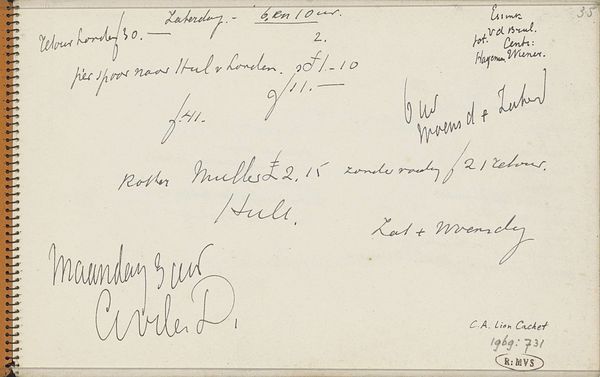 Retour Londen f 30.— Zaterdag.- 6 en 10 uur.
2.
per spoor naar Hul v Londen. £1-10
f 11.—
f 41.
Essmer
tot. V d Breul.
Cents:
Hageman Wiener.
35
6 uur
Woensd + Zaterd
Muller £2.15 zonder f 21 retour.
Hull.
Zat + Woensdg
Maandag 3 uur
D.
C.A. Lion Cachet
1969: 731
R: MVS